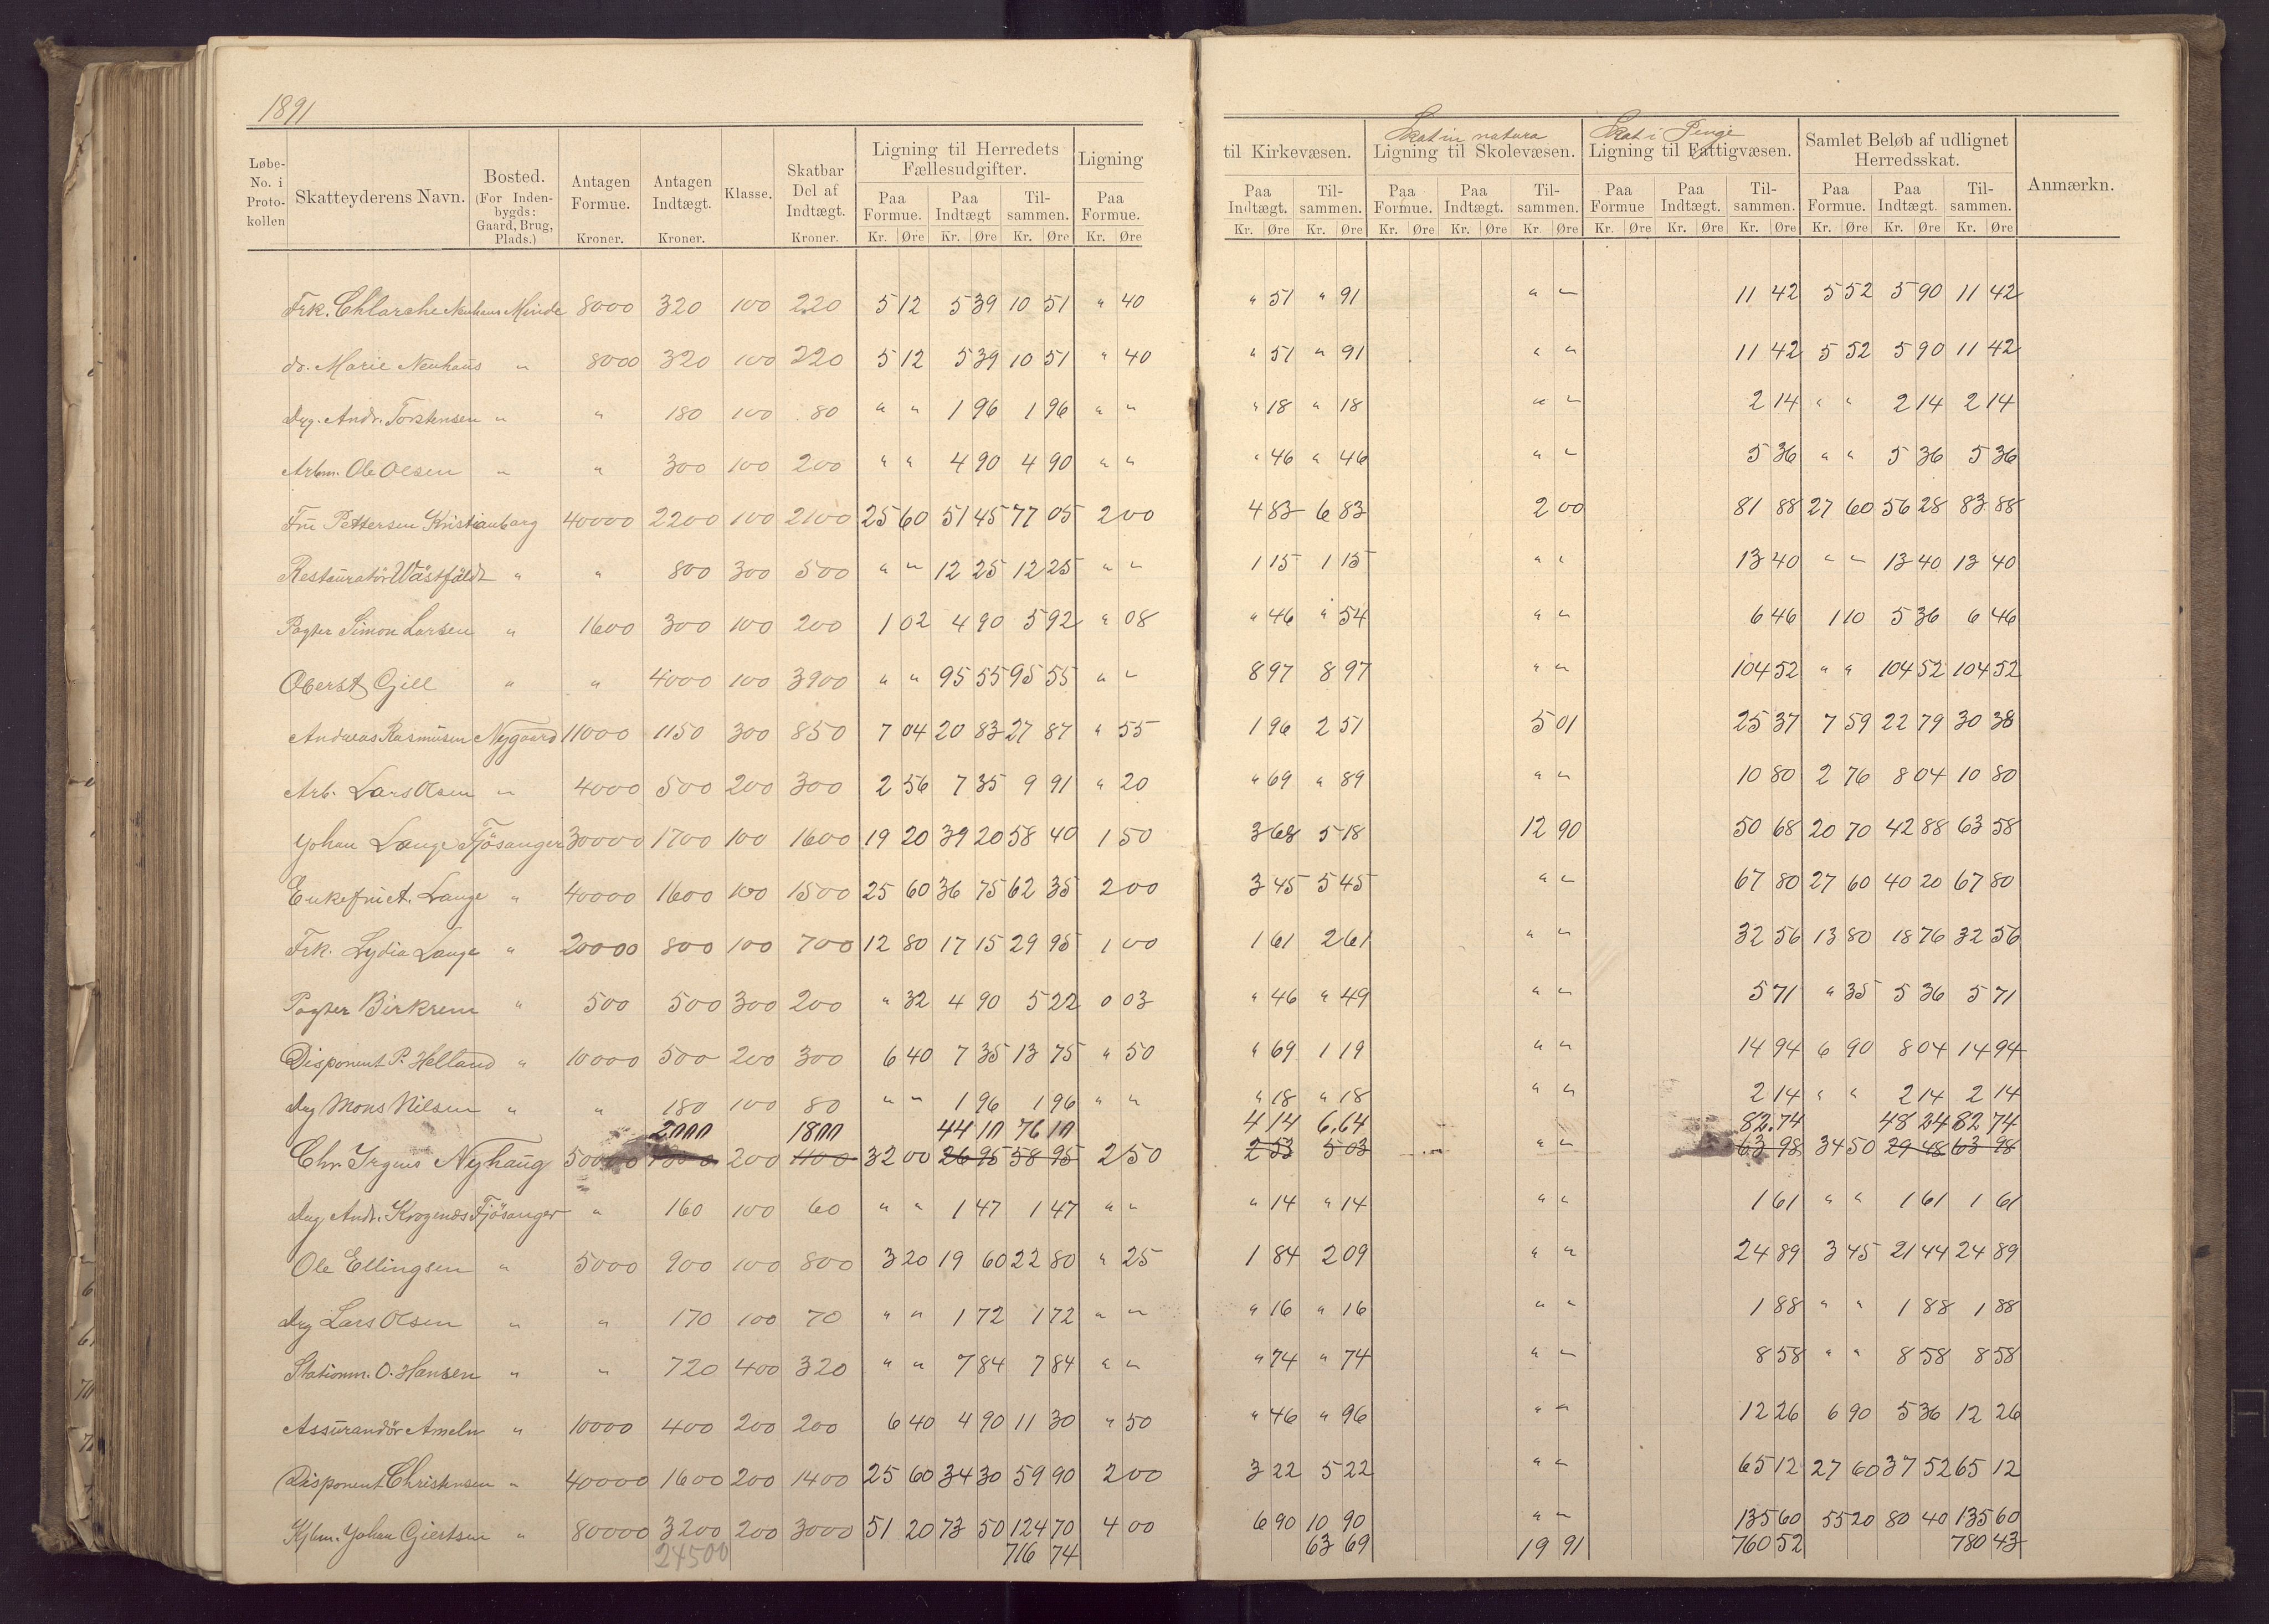 1891
Løbe-No. i Proto-kollen | Skatteyderens Navn. | Bosted. (For Inden-bygds: Gaard, Brug, Plads.) | Antagen Formue. Kroner. | Antagen Indtægt. Kroner. | Klasse. | Skatbar Del af Indtægt. Kroner. | Ligning til Herredets Fællesudgifter. Paa Formue. Kr. Øre | Paa Indtægt Kr. Øre | Til-sammen. Kr. Øre | Ligning Paa Formue. Kr. Øre | til Kirkevæsen. Paa Indtægt. Kr. Øre | Til-sammen. Kr. Øre | Skat in natura Ligning til Skolevæsen. Paa Formue. Kr. Øre | Paa Indtægt. Kr. Øre | Til-sammen. Kr. Øre | Skat i Penge Ligning til Fattigvæsen. Paa Formue Kr. Øre | Paa Indtægt. Kr. Øre | Til-sammen. Kr. Øre | Samlet Beløb af udlignet Herredsskat. Paa Formue. Kr. Øre | Paa Indtægt. Kr. Øre | Til-sammen. Kr. Øre | Anmærkn.
Frk. Neuhaus Minde 8000 320 100 220 5 12 5 39 10 51 " 40 " 51 " 91 " " 11 42 5 52 5 90 11 42
do. Marie Neuhaus " 8000 320 100 220 5 12 5 39 10 51 " 40 " 51 " 91 " " 11 42 5 52 5 90 11 42
Andr. Torstensen " " 180 100 80 " " 1 96 1 96 " " " 18 " 18 " " 2 14 " " 2 14 2 14
Arbm. Ole Olsen " " 300 100 200 " " 4 90 4 90 " " " 46 " 46 " " 5 36 " " 5 36 5 36
Fru Pettersen Kristianborg 40000 2200 100 2100 25 60 51 45 77 05 2 00 4 83 6 83 2 00 81 88 27 60 56 28 83 88
Restauratör Wästfäldt " " 800 300 500 " " 12 25 12 25 " " 1 15 1 15 " " 13 40 " " 13 40 13 40
Pagter Simon Larsen " 1600 300 100 200 1 02 4 90 5 92 " 08 " 46 " 54 " " 6 46 1 10 5 36 6 46
Oberst Gill " " 4000 100 3900 " " 95 55 95 55 " " 8 97 8 97 " " 104 52 " " 104 52 104 52
Andreas Rasmusen Nygaard 11000 1150 300 850 7 04 20 83 27 87 " 55 1 96 2 51 5 01 25 37 7 59 22 79 30 38
Arb. Lars Olsen " 4000 500 200 300 2 56 7 35 9 91 " 20 " 69 " 89 " " 10 80 2 76 8 04 10 80
Johan Lange Fjösanger 30000 1700 100 1600 19 20 39 20 58 40 1 50 3 68 5 18 12 90 50 68 20 70 42 88 63 58
Enkefru Lange " 40000 1600 100 1500 25 60 36 75 62 35 2 00 3 45 5 45 " " 67 80 27 60 40 20 67 80
Frk. Lydia Lange " 20000 800 100 700 12 80 17 15 29 95 1 00 1 61 2 61 " " 32 56 13 80 18 76 32 56
Pagter Birkrem " 500 500 300 200 " 32 4 90 5 22 0 03 " 46 " 49 " " 5 71 " 35 5 36 5 71
Disponent P. Helland " 10000 500 200 300 6 40 7 35 13 75 " 50 " 69 1 19 " " 14 94 6 90 8 04 14 94
Mons Nilsen " " 180 100 80 " " 1 96 1 96 " " " 18 " 18 " " 2 14 " " 2 14 2 14
2000 1800 44 10 76 10 4 14 6,64 82.74 48 24 82 74
Chr Irgens Nyhaug 50000 200 1100 32 00 26 95 58 95 2 50 2 53 5 03 " " 63 98 34 50 29 48 63 98
Andr. Krogenæs Fjösanger " 160 100 60 " " 1 47 1 47 " " " 14 " 14 " " 1 61 " " 1 61 1 61
Ole Ellingsen " 5000 900 100 800 3 20 19 60 22 80 " 25 1 84 2 09 " " 24 89 3 45 21 44 24 89
Lars Olsen " " 170 100 70 " " 1 72 1 72 " " " 16 " 16 " " 1 88 " " 1 88 1 88
Stationm. O. Hansen " " 720 400 320 " " 7 84 7 84 " " " 74 " 74 " " 8 58 " " 8 58 8 58
Assurandör Ameln " 10000 400 200 200 6 40 4 90 11 30 " 50 " 46 " 96 " " 12 26 6 90 5 36 12 26
Disponent Christensen " 40000 1600 200 1400 25 60 34 30 59 90 2 00 3 22 5 22 " " 65 12 27 60 37 52 65 12
Kjbm. Johan Giertsen " 80000 3200 200 3000 51 20 73 50 124 70 4 00 6 90 10 90 " " 135 60 55 20 80 40 135 60
24500 716 74 63 69 19 91 760 52 780 43